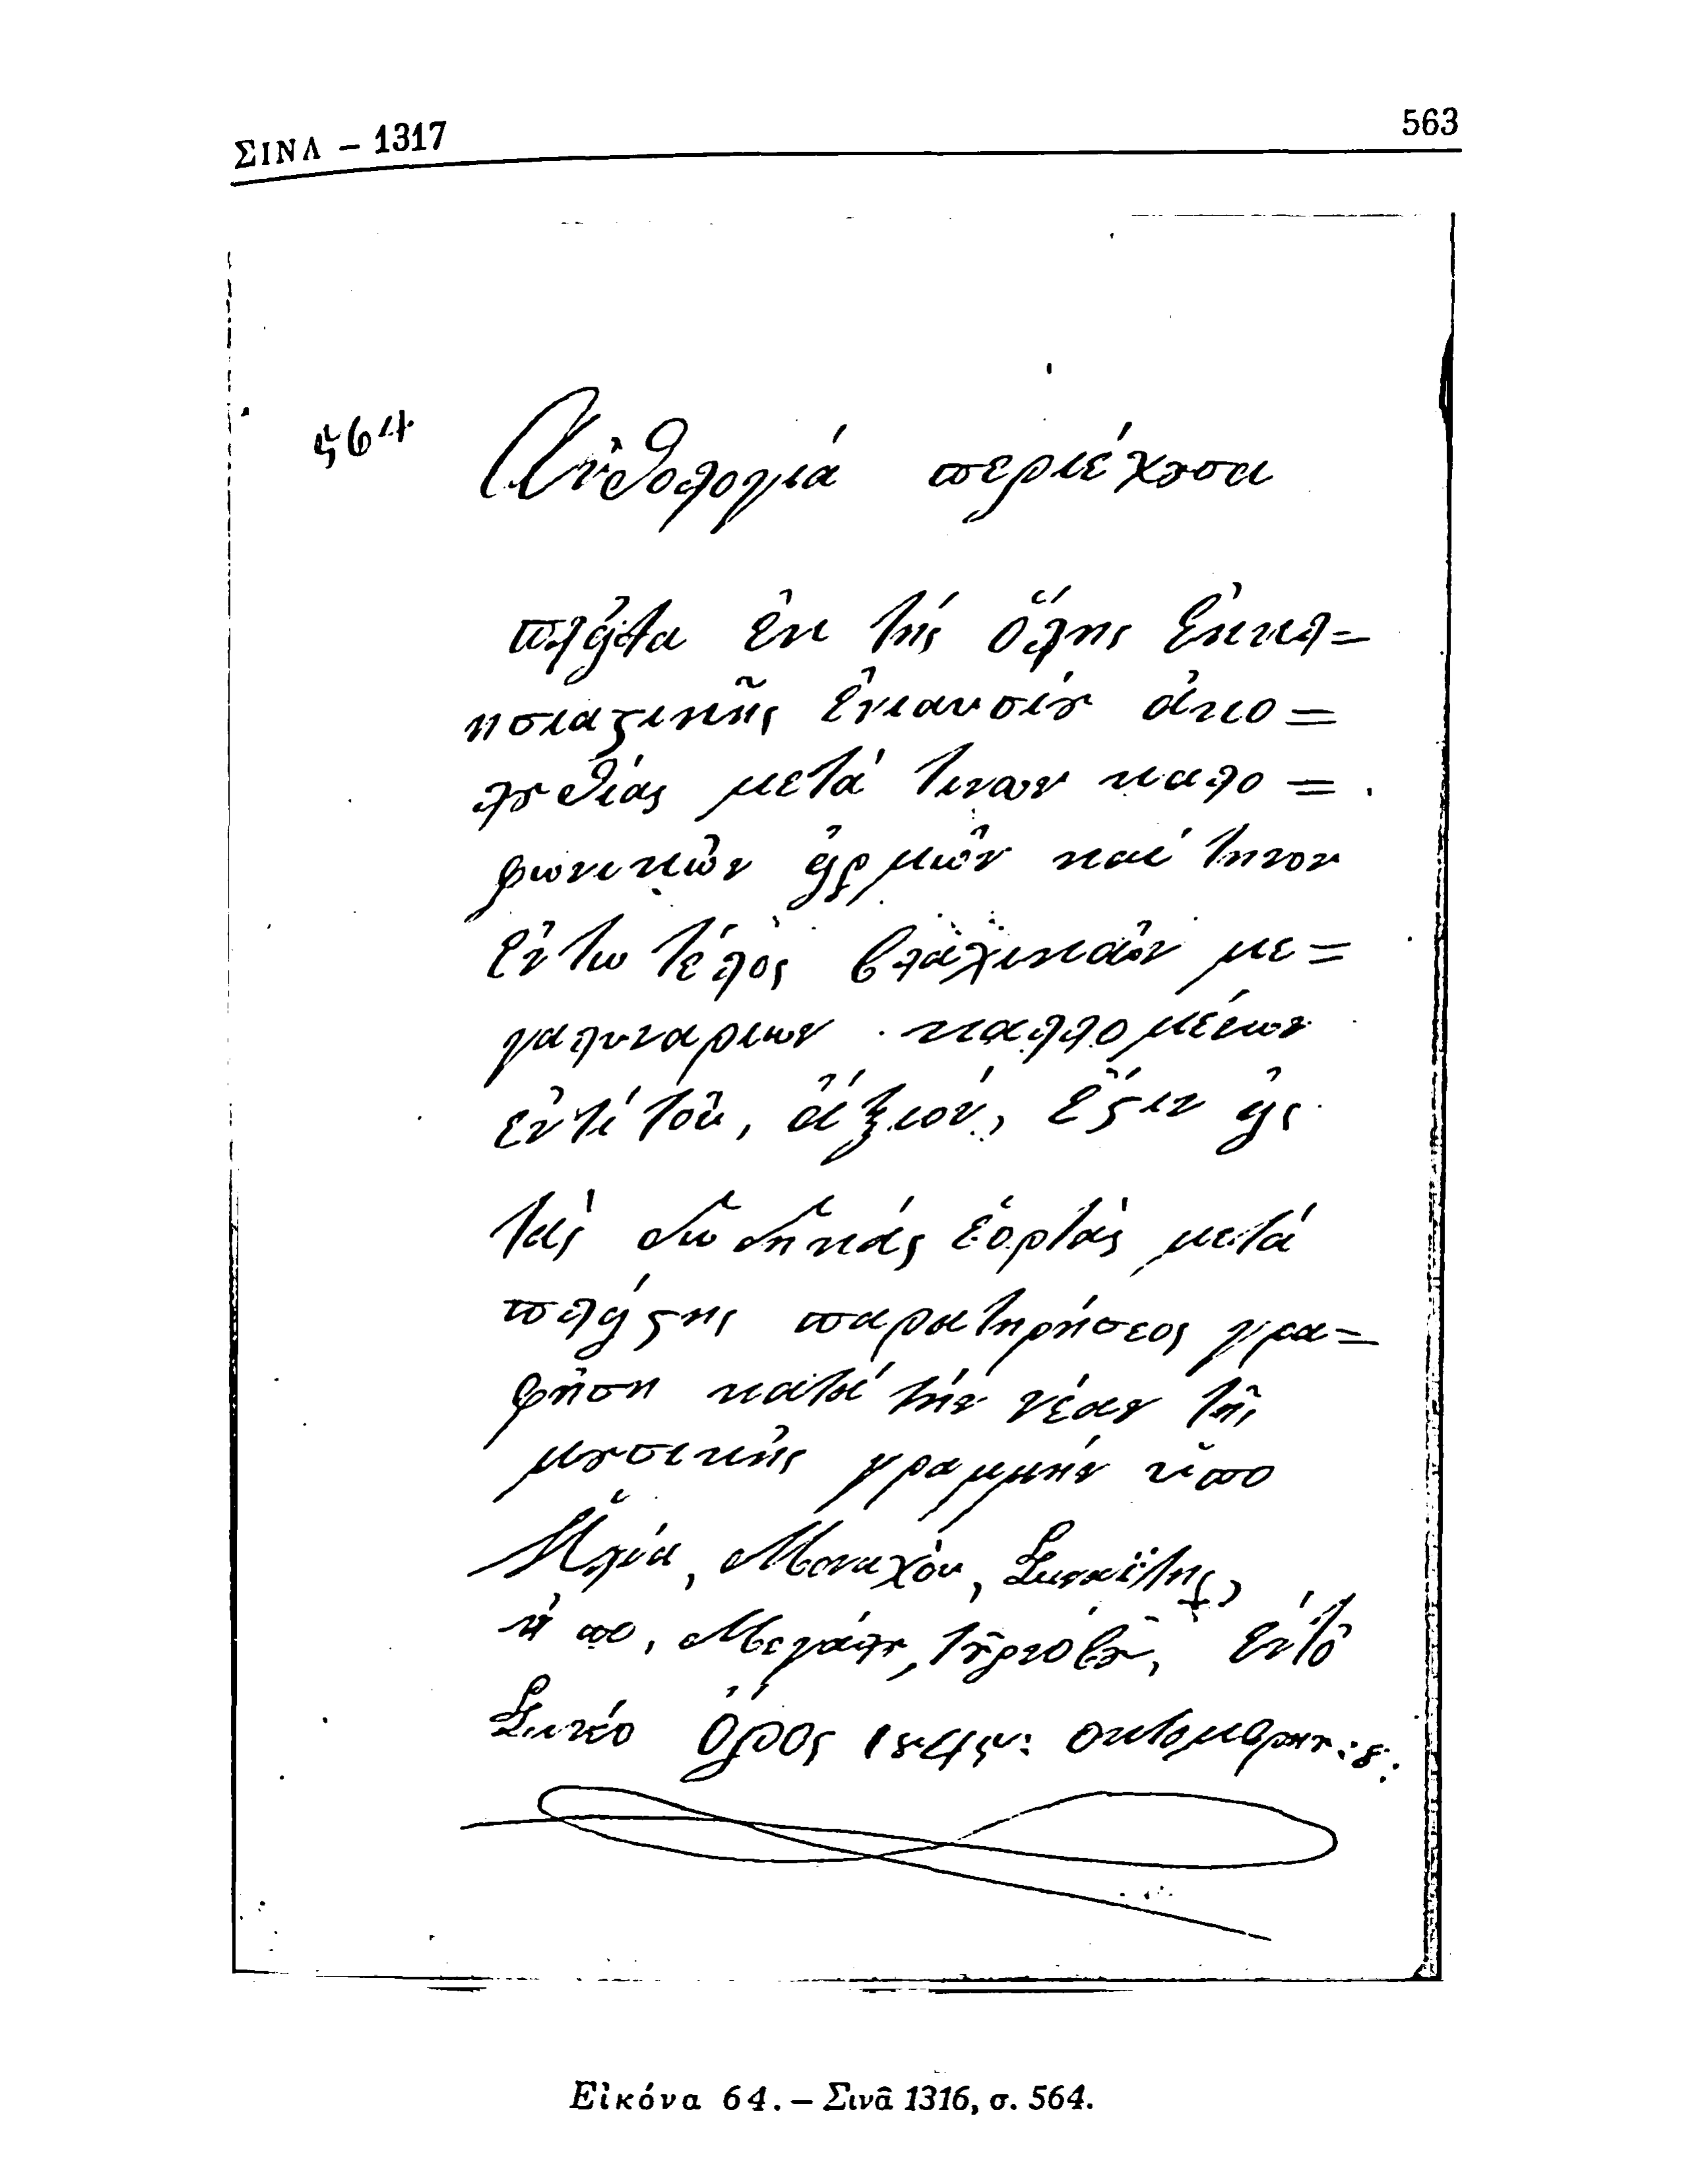 ΣΙΝΑ – 1317
563
564
Ἀνθολογιά περιέχουσα
πλεῖστα ἐκ τῆς ὅλης Ἐκκλ=
ησιαστικῆς ἐνιαυσίου ἀκο=
λουθίας μετά τινων καλο=
φωνικῶν εἱρμῶν καί τηνον
ἐν τω τέλος βλαχικῶν με=
γαλυναρίων καλλομένων
ἐντί τοῦ, ἄξιόν, ἔστιν εἰς
τὰς δωδηκάς ἑορτὰς μετά
πλείστης παρατηρήσεος γρα=
φῆση κατά τήν νέαν τῆς
μουσικῆς γραμμήν ὑπο
Ἠλία, Μοναχοῦ, Σιναΐτης,
ἀπο, Μεγάλου, Τουρνόβου, ἐν τό
Σινέο ὄρος 1845: οκτομβρην: 8:
Εἰκόνα 64. – Σινᾶ 1316, σ. 564.